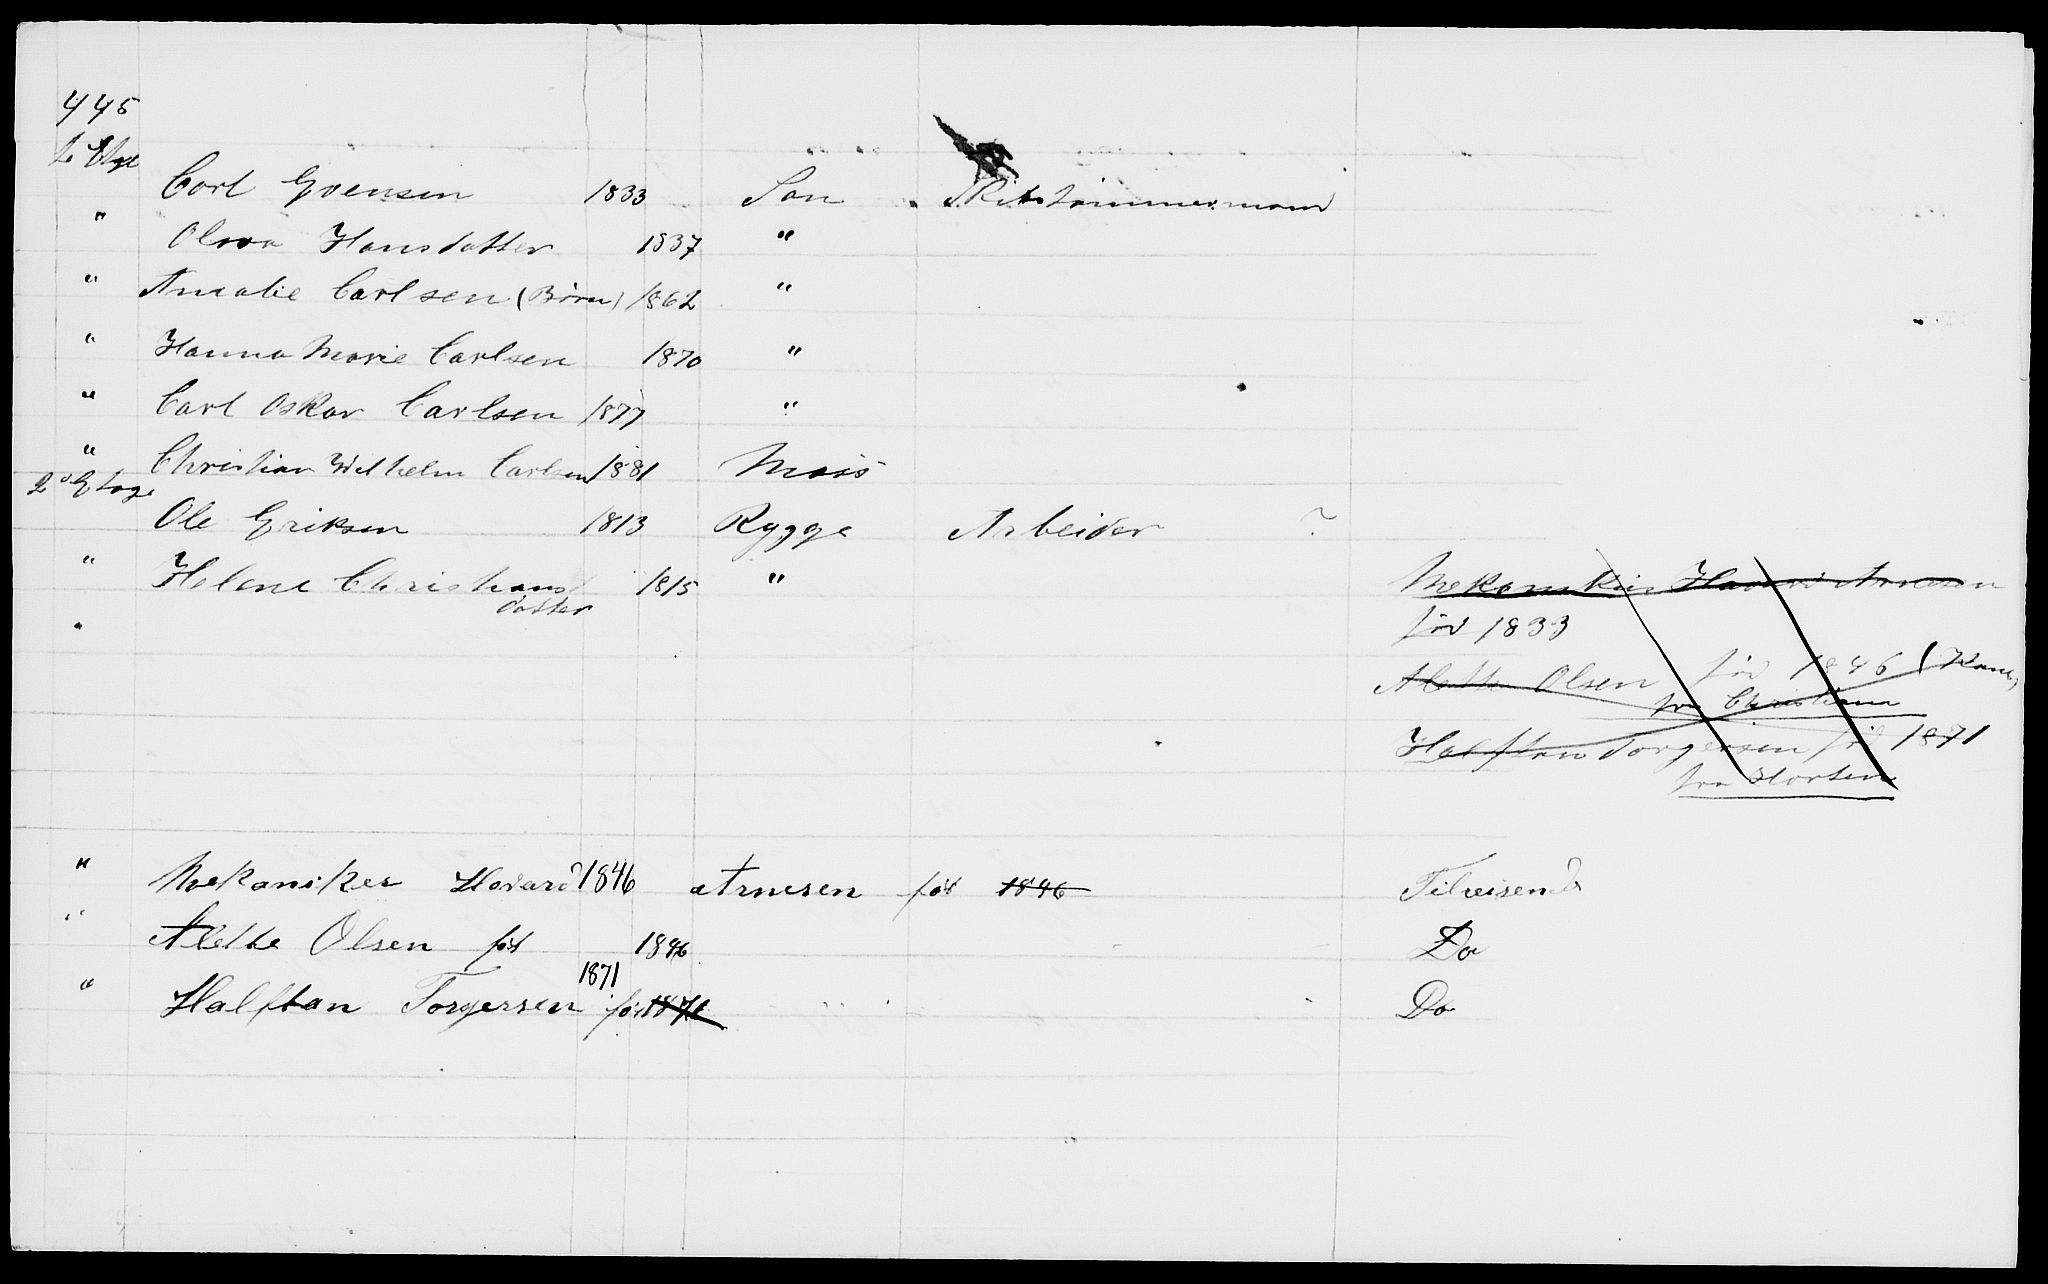 445
1 Etge
Carl Evensen 1833 Son Skibstømmermand
" Olava Hansdatter 1837 "
" Amalie Carlsen (Børn) 1862 "
" Hanna Marie Carlsen 1870 "
" Carl Oskar Carlsen 1877 "
" Christian Wilhelm Carlsen 1881 Moss
2den Etage
Ole Eriksen 1813 Rygge Arbeider ?
" Helene Christians 1815 "
datter
"
Mekaniker Havard Arnesen
fød 1833
Alette Olsen fød 1846 (Kone)
fra Christiania
Halftan Torgersen fød 1871
fra Horten
" Mekaniker Havard 1846 Arnesen fød 1846 Tilreisende
" Alette Olsen fød 1846 Do
1871
" Halftan Torgersen fød 1871 Do